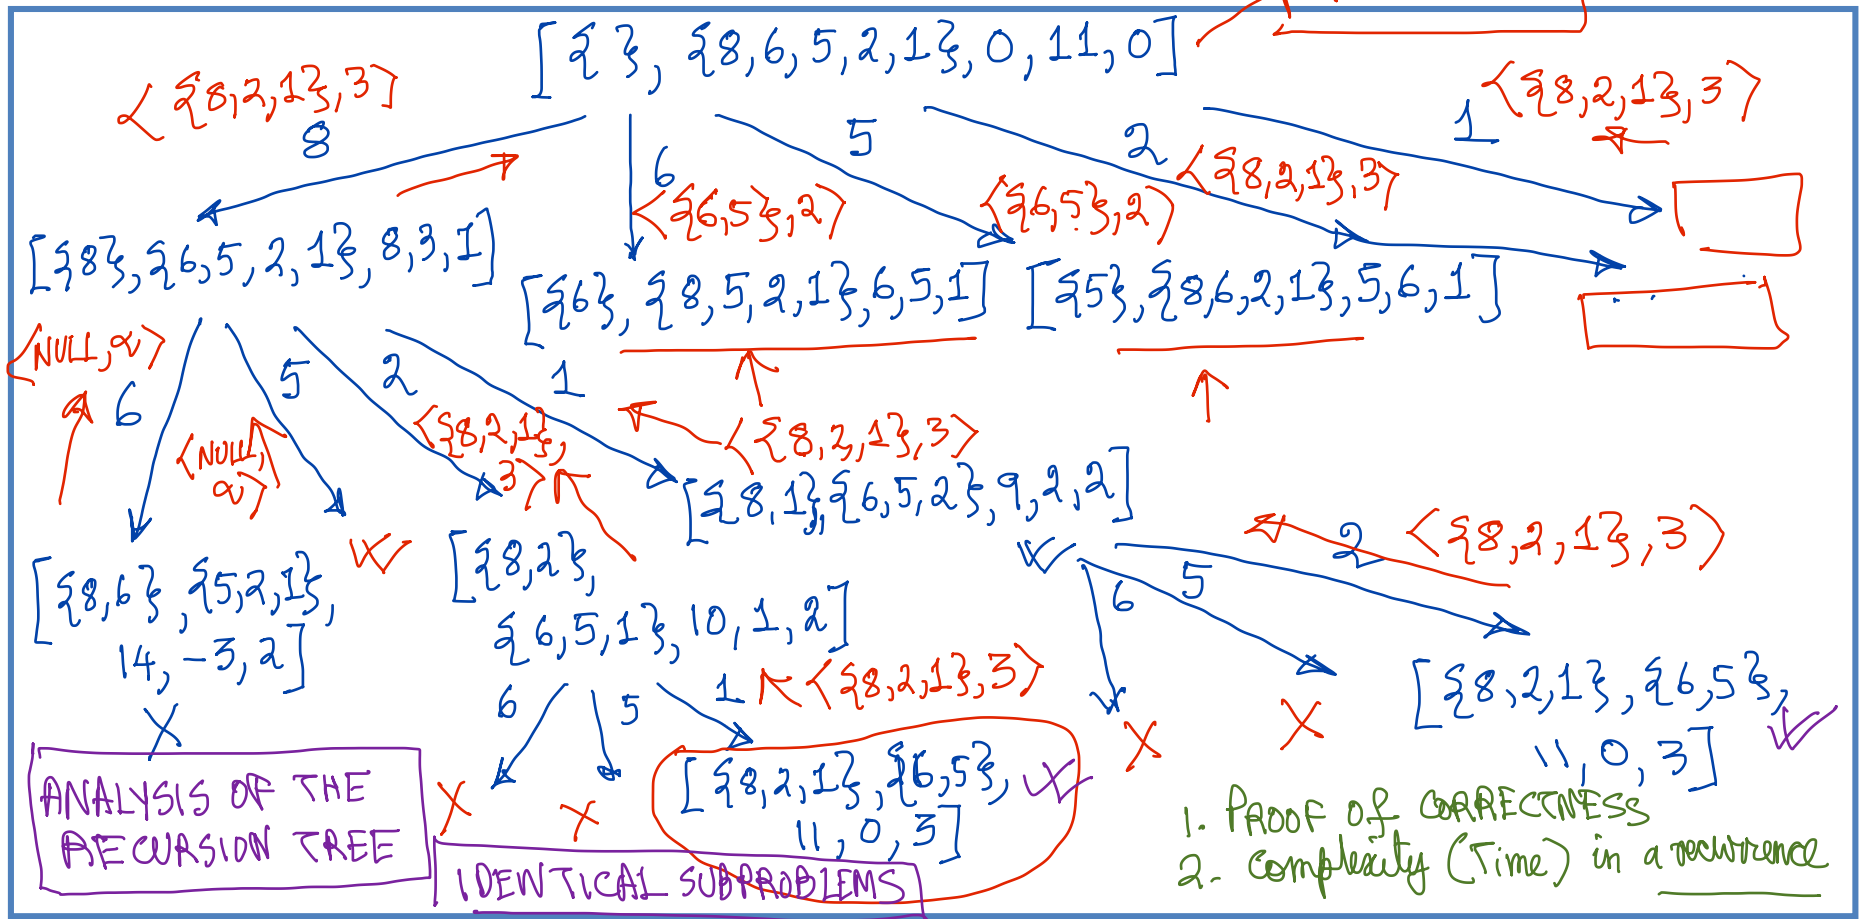 [{ }, {8,6,5,2,1}, 0, 11, 0]
<{8,2,1},3>
8
6
5
2
1
<{8,2,1},3>
<{6,5},2>
<{6,5},2>
<{8,2,1},3>
[{8},{6,5,2,1},8,3,1]
[{6},{8,5,2,1},6,5,1]
[{5},{8,6,2,1},5,6,1]
<NULL,α>
6
5
2
1
<NULL,
α>
<{8,2,1},
3>
<{8,2,1},3>
[{8,1},{6,5,2},9,2,2]
[{8,6},{5,2,1},
14,-3,2]
[{8,2},
{6,5,1},10,1,2]
6
5
2
<{8,2,1},3>
6
5
1
<{8,2,1},3>
[{8,2,1},{6,5},
11,0,3]
[{8,2,1},{6,5},
11,0,3]
X
X
X
X
X
ANALYSIS OF THE
RECURSION TREE
IDENTICAL SUBPROBLEMS
1. PROOF OF CORRECTNESS
2. Complexity (Time) in a recurrence